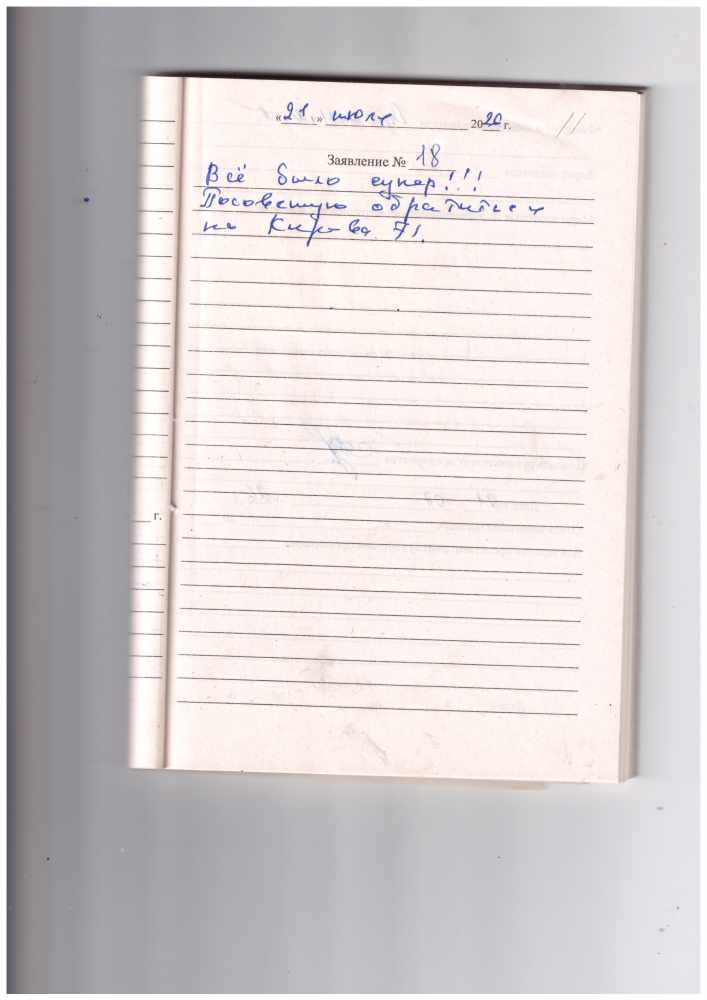 «21» июля 2020 г.
11
Заявление № 18
Всё было супер!!!
Посоветую обратиться
на Кирова 71.
г.